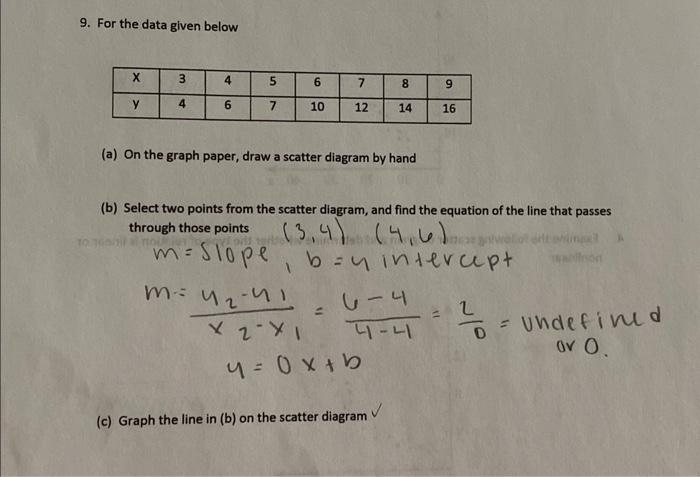 9. For the data given below
X 3 4 5 6 7 8 9
y 4 6 7 10 12 14 16
(a) On the graph paper, draw a scatter diagram by hand
(b) Select two points from the scatter diagram, and find the equation of the line that passes
through those points (3,4) (4,6)
m = slope, b = y intercept
m = y2-y1 / x2-x1 = 6-4 / 4-4 = 2/0 = undefined
or 0.
y = 0x+b
(c) Graph the line in (b) on the scatter diagram ✓